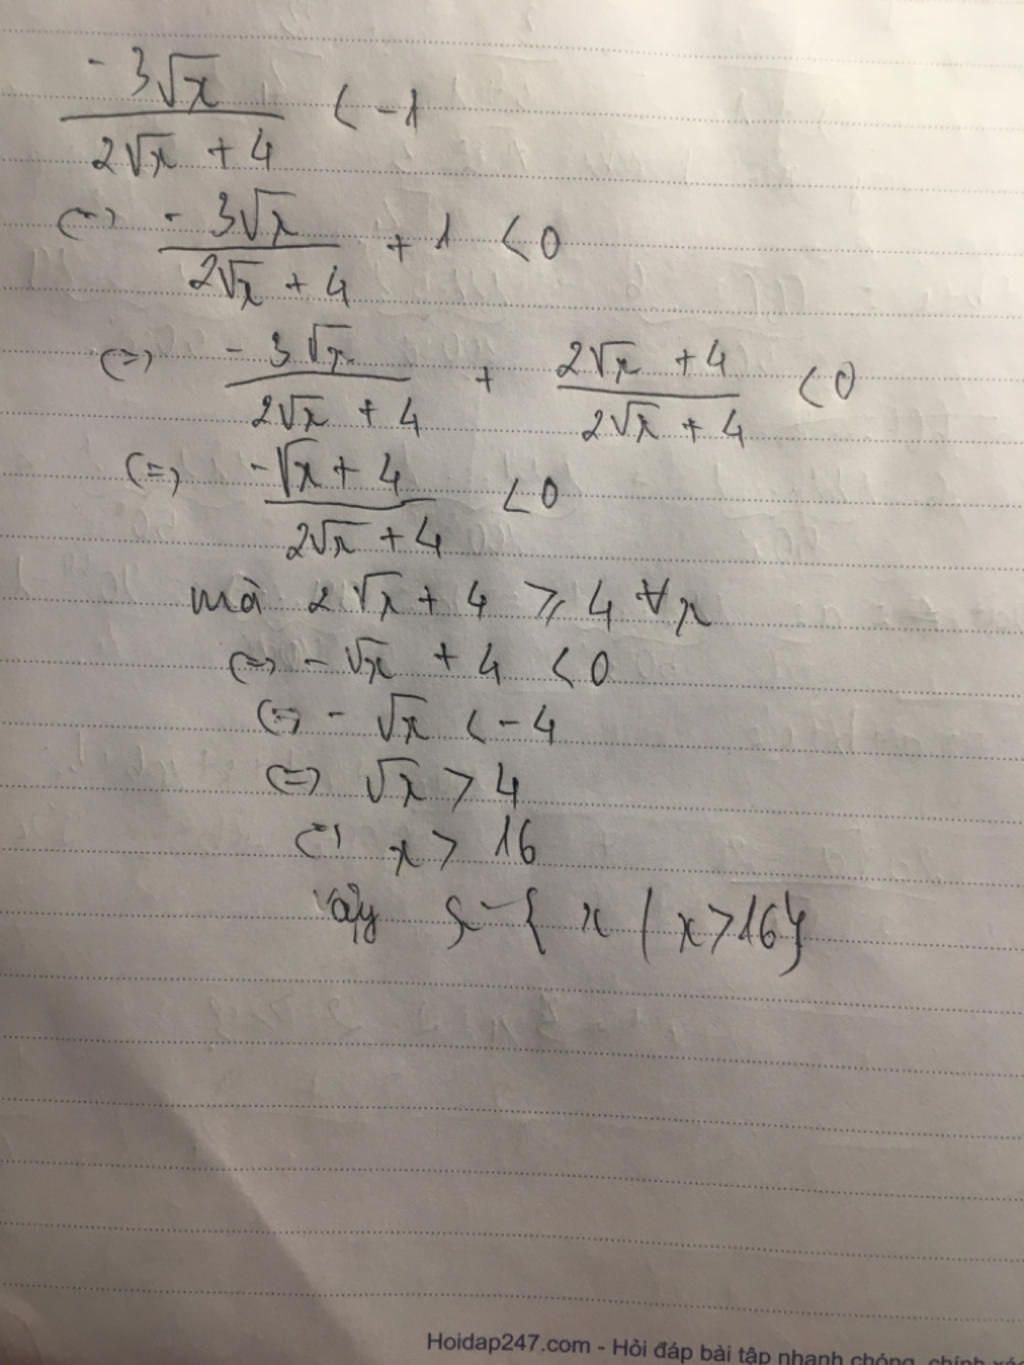 -3√x / (2√x + 4) < -1
(=) -3√x / (2√x + 4) + 1 < 0
(=) -3√x / (2√x + 4) + (2√x + 4) / (2√x + 4) < 0
(=) (-√x + 4) / (2√x + 4) < 0
mà 2√x + 4 ⩾ 4 ∀x
(=) -√x + 4 < 0
(=) -√x < -4
(=) √x > 4
(=) x > 16
Vậy S = { x / x > 16 }
Hoidap247.com - Hỏi đáp bài tập nhanh chóng, chính xác